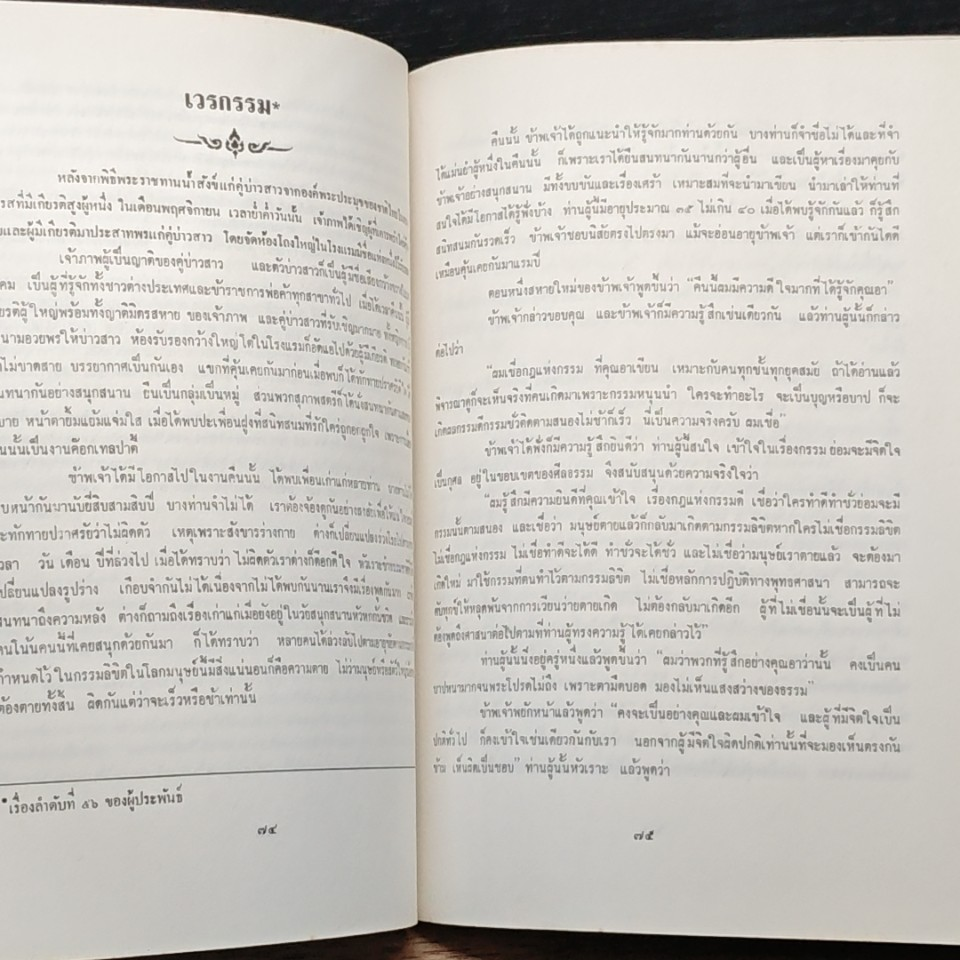 เวรกรรม*
หลังจากพิธีพระราชทานน้ำสังข์แก่คู่บ่าวสาวจากองค์พระประมุขของชาติไทย
รสที่มีเกียรติสูงผู้หนึ่ง ในเดือนพฤศจิกายน เวลาย่ำค่ำวันนั้น เจ้าภาพได้เชิญ
ยและผู้มีเกียรติมาประสาทพรแก่คู่บ่าวสาว โดยจัดห้องโถงใหญ่ในโรงแรมมีชื่อ
เจ้าภาพผู้เป็นญาติของคู่บ่าวสาว และตัวบ่าวสาวก็เป็นผู้มีชื่อเสียง
คม เป็นผู้ที่รู้จักทั้งชาวต่างประเทศและข้าราชการพ่อค้าทุกสาขาทั่วไป เมื่อได้เวลา
ยรติผู้ใหญ่พร้อมทั้งญาติมิตรสหาย ของเจ้าภาพ และคู่บ่าวสาวที่รับเชิญมากมาย
นามอวยพรให้บ่าวสาว ห้องรับรองกว้างใหญ่โตในโรงแรมก็อัดแอไปด้วยผู้มีเกียรติ
าไม่ขาดสาย บรรยากาศเป็นกันเอง แขกที่คุ้นเคยกันมาก่อนเมื่อพบก็ได้ทักทายปราศรัย
นทนากันอย่างสนุกสนาน ยืนเป็นกลุ่มเป็นหมู่ ส่วนพวกสุภาพสตรีก็ได้นั่งสนทนากัน
บาย หน้าตายิ้มแย้มแจ่มใส เมื่อได้พบปะเพื่อนฝูงที่สนิทสนมที่รักใคร่ถูกอกถูกใจ เพราะ
นนั้นเป็นงานค๊อกเทลปาตี้
ข้าพเจ้าได้มีโอกาสไปในงานคืนนั้น ได้พบเพื่อนเก่าแก่หลายท่าน บางท่าน
บหน้ากันมานับยี่สิบสามสิบปี บางท่านจำไม่ได้ เราต้องจ้องดูกันอย่างสงสัย
ะทักทายปราศรัยว่าไม่ผิดตัว เหตุเพราะสังขารร่างกาย ต่างก็เปลี่ยนแปลงร่วงโรยไป
วลา วัน เดือน ปีที่ล่วงไป เมื่อได้ทราบว่า ไม่ผิดตัวเราต่างก็ดีอกดีใจ หัวเราะ
ปลี่ยนแปลงรูปร่าง เกือบจำกันไม่ได้เนื่องจากไม่ได้พบกันนานเราจึงมีเรื่องพูดกันมาก
นทนาถึงความหลัง ต่างก็ถามถึงเรื่องเก่าแก่เมื่อยังอยู่ในวัยสนุกสนานหัวหกก้นขวิด
คนในนั้นคนนี้ที่เคยสนุกด้วยกันมา ก็ได้ทราบว่า หลายคนได้ล่วงลับไปตามอายุขัย
ำหนดไว้ในกรรมลิขิตในโลกมนุษย์นี้มีสิ่งแน่นอนก็คือความตาย ไม่ว่ามนุษย์หรือสัตว์
ต้องตายทั้งสิ้น ผิดกันแต่ว่าจะเร็วหรือช้าเท่านั้น
*เรื่องลำดับที่ ๕๖ ของผู้ประพันธ์
๗๔
คืนนั้น ข้าพเจ้าได้ถูกแนะนำให้รู้จักมากท่านด้วยกัน บางท่านก็จำชื่อไม่ได้และที่จำ
ได้แม่นยำผู้หนึ่งในคืนนั้น ก็เพราะเราได้ยืนสนทนากันนานกว่าผู้อื่น และเป็นผู้หาเรื่องมาคุยกับ
ข้าพเจ้าอย่างสนุกสนาน มีทั้งขบขันและเรื่องเศร้า เหมาะสมที่จะนำมาเขียน นำมาเล่าให้ท่านที่
สนใจได้มีโอกาสได้รู้ฟังบ้าง ท่านผู้นี้มีอายุประมาณ ๓๕ ไม่เกิน ๔๐ เมื่อได้พบรู้จักกันแล้ว ก็รู้สึก
สนิทสนมกันรวดเร็ว ข้าพเจ้าชอบนิสัยตรงไปตรงมา แม้จะอ่อนอายุข้าพเจ้า แต่เราก็เข้ากันได้ดี
เหมือนคุ้นเคยกันมาแรมปี
ตอนหนึ่งสหายใหม่ของข้าพเจ้าพูดขึ้นว่า “คืนนี้ผมมีความดีใจมากที่ได้รู้จักคุณอา”
ข้าพเจ้ากล่าวขอบคุณ และข้าพเจ้าก็มีความรู้สึกเช่นเดียวกัน แล้วท่านผู้นั้นก็กล่าว
ต่อไปว่า
“ผมเชื่อกฎแห่งกรรม ที่คุณอาเขียน เหมาะกับคนทุกชั้นทุกยุคสมัย ถ้าได้อ่านแล้ว
พิจารณาดูก็จะเห็นจริงที่คนเกิดมาเพราะกรรมหนุนนำ ใครจะทำอะไร จะเป็นบุญหรือบาป ก็จะ
เกิดผลกรรมดีกรรมชั่วติดตามสนองไม่ช้าก็เร็ว นี่เป็นความจริงครับ ผมเชื่อ”
ข้าพเจ้าได้ฟังก็มีความรู้สึกยินดีว่า ท่านผู้นี้สนใจ เข้าใจในเรื่องกรรม ย่อมจะมีจิตใจ
เป็นกุศล อยู่ในขอบเขตของศีลธรรม จึงสนับสนุนด้วยความจริงใจว่า
“ผมรู้สึกมีความยินดีที่คุณเข้าใจ เรื่องกฎแห่งกรรมดี เชื่อว่าใครทำดีทำชั่วย่อมจะมี
กรรมนั้นตามสนอง และเชื่อว่า มนุษย์ตายแล้วก็กลับมาเกิดตามกรรมลิขิตหากใครไม่เชื่อกรรมลิขิต
ไม่เชื่อกฎแห่งกรรม ไม่เชื่อทำดีจะได้ดี ทำชั่วจะได้ชั่ว และไม่เชื่อว่ามนุษย์เราตายแล้ว จะต้องมา
เกิดใหม่ มาใช้กรรมที่ตนทำไว้ตามกรรมลิขิต ไม่เชื่อหลักการปฏิบัติทางพุทธศาสนา สามารถจะ
ดับทุกข์ให้หลุดพ้นจากการเวียนว่ายตายเกิด ไม่ต้องกลับมาเกิดอีก ผู้ที่ไม่เชื่อนั้นจะเป็นผู้ที่ไม่
ต้องพูดถึงศาสนาต่อไปตามที่ท่านผู้ทรงความรู้ได้เคยกล่าวไว้”
ท่านผู้นั้นนิ่งอยู่ครู่หนึ่งแล้วพูดขึ้นว่า “ผมว่าพวกที่รู้สึกอย่างคุณอาว่านั้น คงเป็นคน
บาปหนามากจนพระโปรดไม่ถึง เพราะตามืดบอด มองไม่เห็นแสงสว่างของธรรม”
ข้าพเจ้าพยักหน้าแล้วพูดว่า “คงจะเป็นอย่างคุณและผมเข้าใจ และผู้ที่มีจิตใจเป็น
ปกติทั่วไป ก็คงเข้าใจเช่นเดียวกันกับเรา นอกจากผู้มีจิตใจผิดปกติเท่านั้นที่จะมองเห็นตรงกัน
ข้าม เห็นผิดเป็นชอบ” ท่านผู้นั้นหัวเราะ แล้วพูดว่า
๗๕